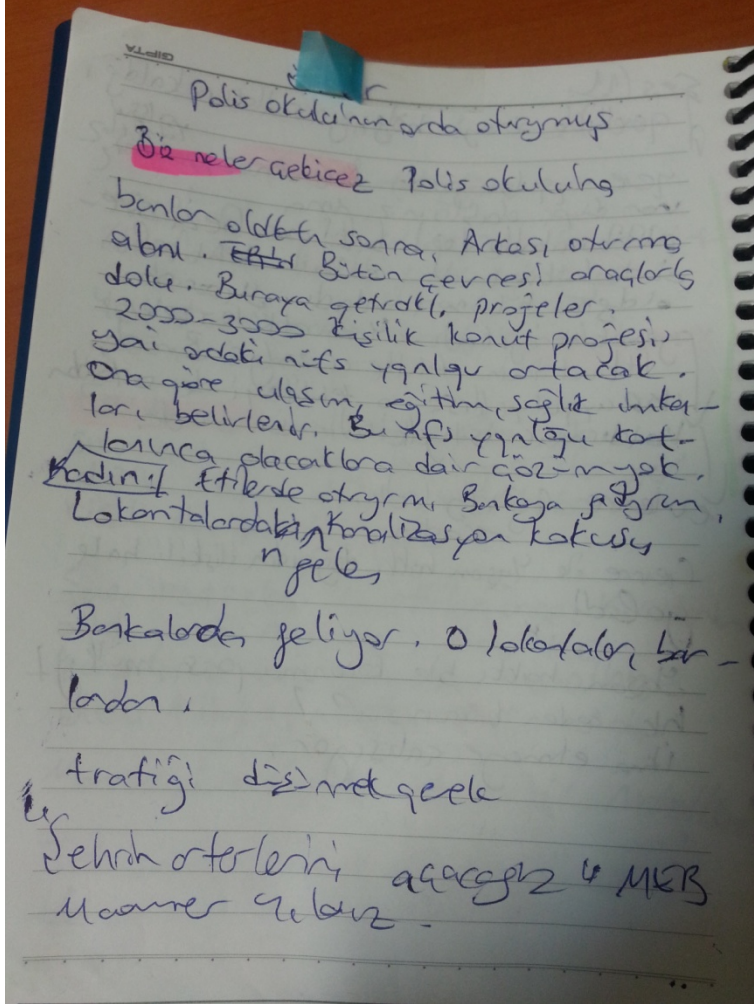 GIPTA
Polis okulunun orda oturuyormuş
Biz neler çekicez Polis okuluna
bunlar olduktan sonra. Arkası oturma
alanı. Bütün çevresi araçlarla
dolu. Buraya projeler.
2000-3000 kişilik konut projesi,
yai ordaki nüfs yğnlğu ortacak.
Ona göre ulaşım, eğitim, sağlık imka-
ları belirlenir. Bu nfs yğnlğu kat-
larınca olacaklara dair çözüm yok.
Kadın: Etilerde otryrm. Bankaya
Lokantalardakin Kanalizasyon kokusu
n gelen
Bankalardan geliyor. O lokantalar, bar-
lardan.
trafiği düşünmek gerek
Şehrin arterlerini açacağız 4 MEB
Muammer Yılmaz.